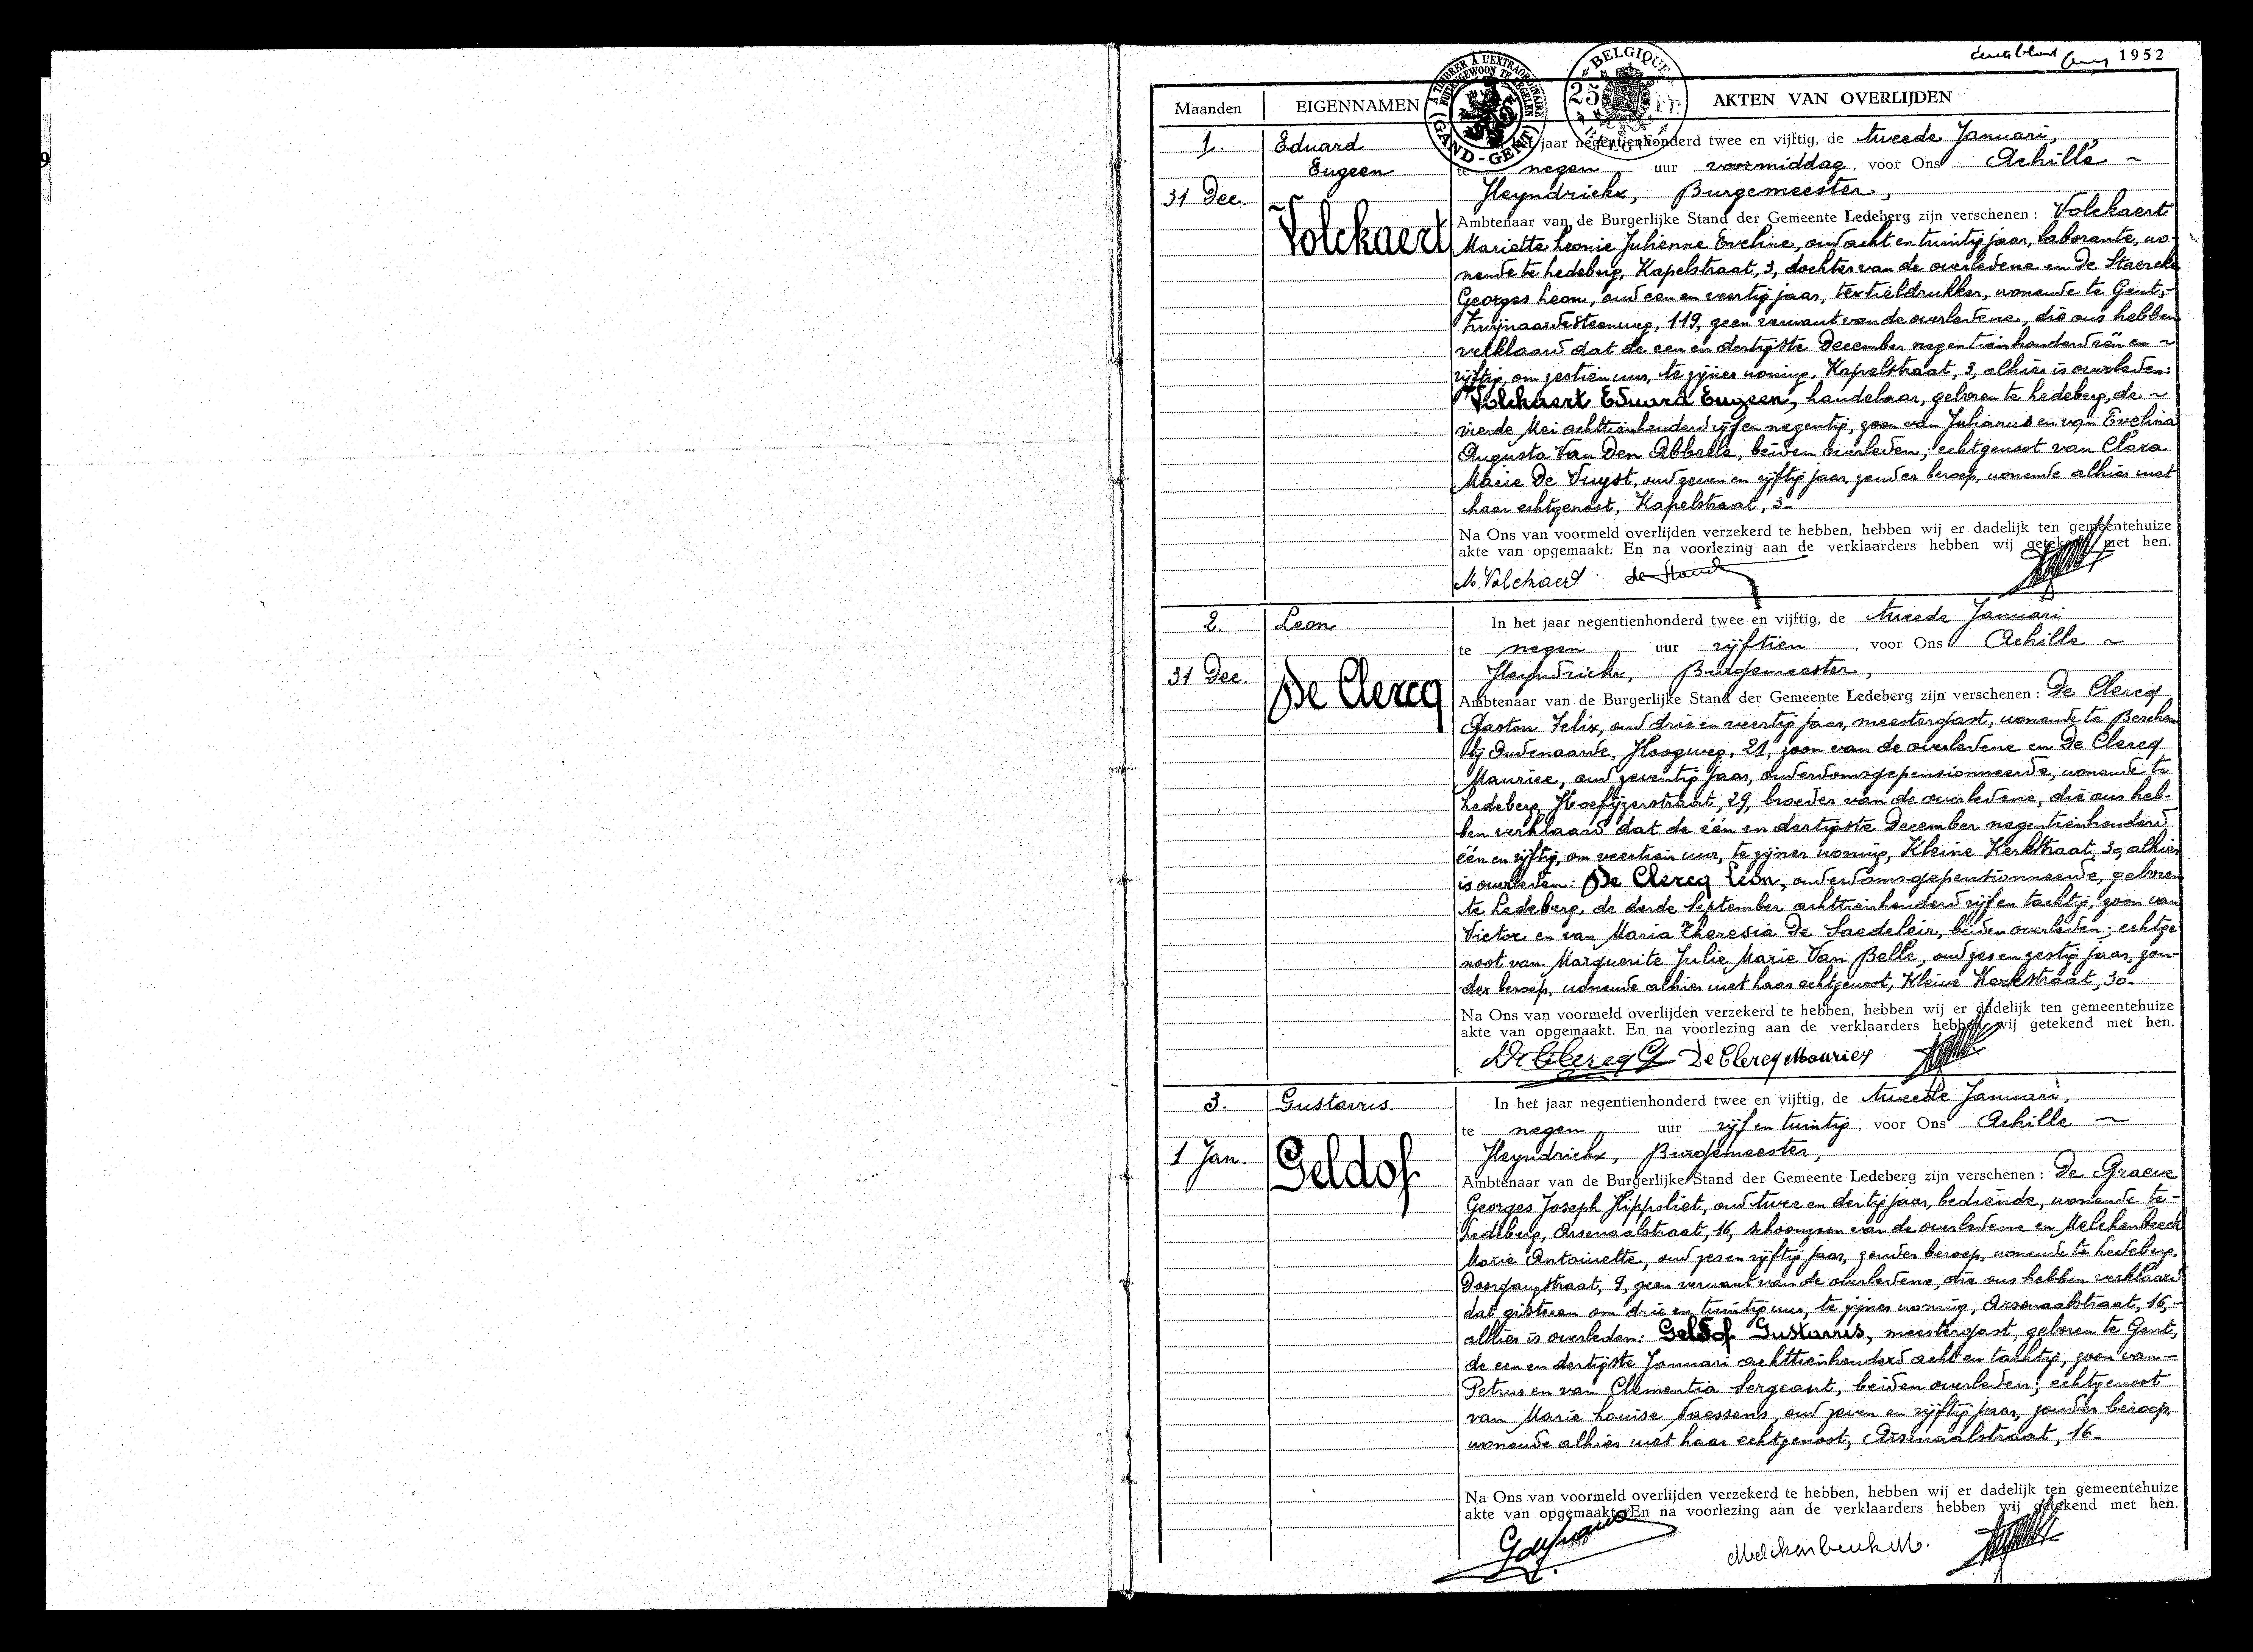 1952
Maanden EIGENNAMEN AKTEN VAN OVERLIJDEN
A TIMBRER À L'EXTRAORDINAIRE
BUITENGEWOON TE ZEGELEN
GAND-GENT
BELGIQUE
25 Fr.
BELGIË
1.
31 Dec.
Eduard
Eugeen
Volckaert
In het jaar negentienhonderd twee en vijftig, de tweede Januari,
te negen uur voormiddag, voor Ons Achille ~
Heyndrickx, Burgemeester,
Ambtenaar van de Burgerlijke Stand der Gemeente Ledeberg zijn verschenen: Volckaert
Mariette Leonie Julienne Eveline, oud acht en twintig jaar, laborante, wo-
nende te Ledeberg, Kapelstraat, 3, dochter van de overledene en De Staercke
Georges Leon, oud een en veertig jaar, textieldrukker, wonende te Gent,-
Zwijnaardesteenweg, 119, geen verwant van de overledene, die ons hebben
verklaard dat de een en dertigste December negentienhonderd één en ~
vijftig, om zestien uur, te zijner woning, Kapelstraat, 3, alhier is overleden:
Volckaert Eduard Eugeen, handelaar, geboren te Ledeberg, de ~
vierde Mei achttienhonderd vijf en negentig, zoon van Julianus en van Evelina
Augusta Van Den Abbeele, beiden overleden; echtgenoot van Clara
Marie De Vuyst, oud zeven en vijftig jaar, zonder beroep, wonende alhier met
haar echtgenoot, Kapelstraat, 3-
Na Ons van voormeld overlijden verzekerd te hebben, hebben wij er dadelijk ten gemeentehuize
akte van opgemaakt. En na voorlezing aan de verklaarders hebben wij getekend met hen.
M. Volckaert
2.
31 Dec.
Leon
De Clercq
In het jaar negentienhonderd twee en vijftig, de tweede Januari
te negen uur vijftien, voor Ons Achille ~
Heyndrickx, Burgemeester,
Ambtenaar van de Burgerlijke Stand der Gemeente Ledeberg zijn verschenen: De Clercq
Gaston Felix, oud drie en veertig jaar, meestergast, wonende te Berchem
bij Oudenaarde, Hoogweg, 21, zoon van de overledene en De Clercq
Maurice, oud zeventig jaar, ouderdomsgepensionneerde, wonende te
Ledeberg, Hoefijzerstraat, 29, broeder van de overledene, die ons heb-
ben verklaard dat de één en dertigste December negentienhonderd
één en vijftig, om veertien uur, te zijner woning, Kleine Kerkstraat, 30, alhier
is overleden: De Clercq Leon, ouderdomsgepentionneerde, geboren
te Ledeberg, de derde September achttienhonderd vijf en tachtig, zoon van
Victor en van Maria Theresia De Saedeleir, beiden overleden; echtge
noot van Marguerite Julie Marie Van Belle, oud zes en zestig jaar, zon-
der beroep, wonende alhier met haar echtgenoot, Kleine Kerkstraat, 30-
Na Ons van voormeld overlijden verzekerd te hebben, hebben wij er dadelijk ten gemeentehuize
akte van opgemaakt. En na voorlezing aan de verklaarders hebben wij getekend met hen.
De Clercq G De Clercq Maurice
3.
1 Jan.
Gustavus
Geldof
In het jaar negentienhonderd twee en vijftig, de tweede Januari,
te negen uur vijf en twintig, voor Ons Achille ~
Heyndrickx, Burgemeester,
Ambtenaar van de Burgerlijke Stand der Gemeente Ledeberg zijn verschenen: De Graeve
Georges Joseph Hippoliet, oud twee en dertig jaar, bediende, wonende te-
Ledeberg, Arsenaalstraat, 16, schoonzoon van de overledene en Melckenbeeck
Marie Antoinette, oud zes en vijftig jaar, zonder beroep, wonende te Ledeberg,
Doorgangstraat, 9, geen verwant van de overledene, die ons hebben verklaard
dat gisteren om drie en twintig uur, te zijner woning, Arsenaalstraat, 16,-
alhier is overleden: Geldof Gustavus, meestergast, geboren te Gent,
de een en dertigste Januari achttienhonderd acht en tachtig, zoon van-
Petrus en van Clementia Sergeant, beiden overleden; echtgenoot
van Marie Louise Naessens, oud zeven en vijftig jaar, zonder beroep,
wonende alhier met haar echtgenoot, Arsenaalstraat, 16-
Na Ons van voormeld overlijden verzekerd te hebben, hebben wij er dadelijk ten gemeentehuize
akte van opgemaakt. En na voorlezing aan de verklaarders hebben wij getekend met hen.